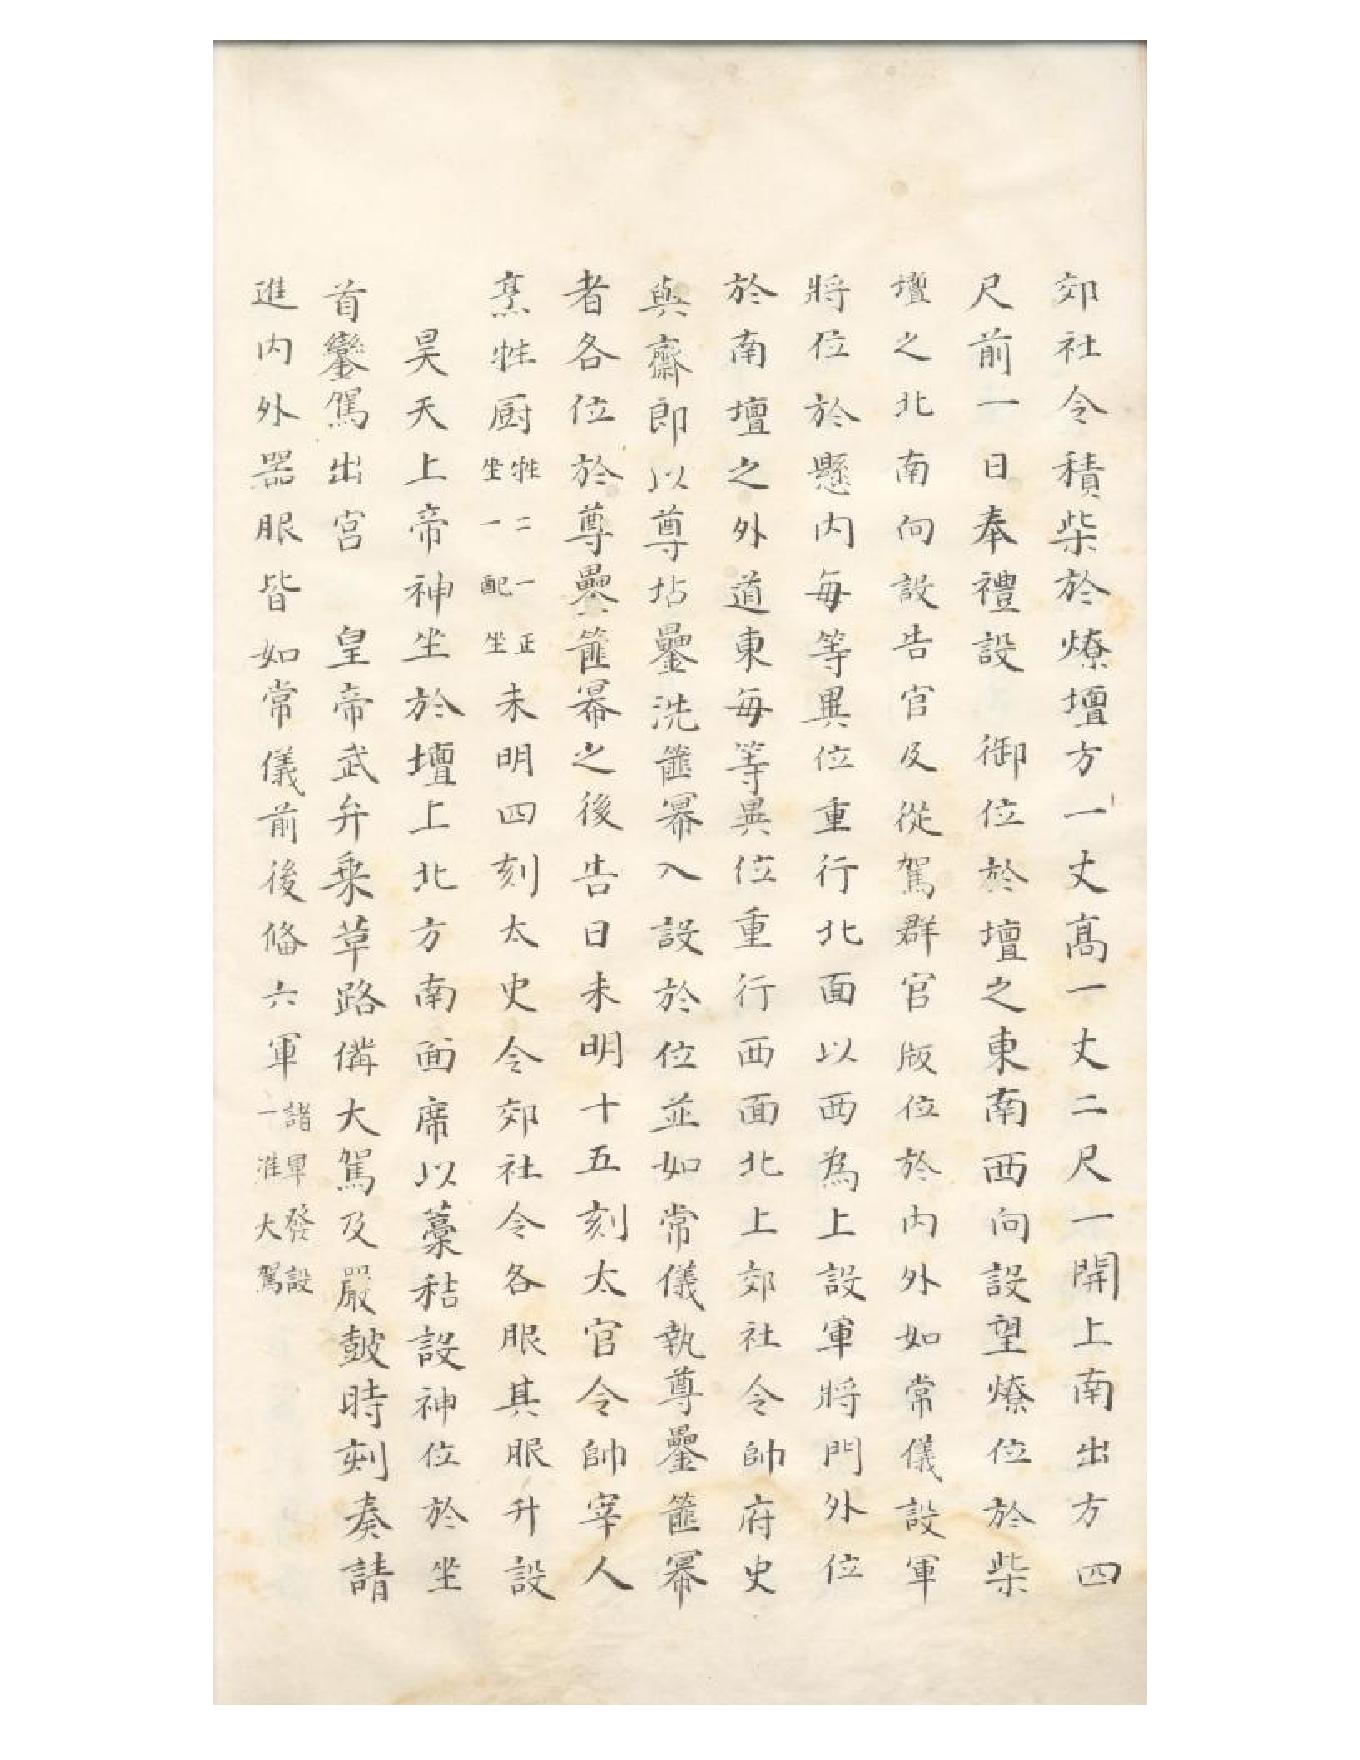 郊社令積柴於燎壇方一丈高一丈二尺一開上南出方四
尺前一日奉禮設 御位於壇之東南西向設望燎位於柴
壇之北南向設告官及從駕群官版位於內外如常儀設軍
將位於懸內每等異位重行北面以西為上設軍將門外位
於南壇之外道東每等異位重行西面北上郊社令帥府史
與齋郎以尊坫罍洗篚冪入設於位並如常儀執尊罍篚冪
者各位於尊罍篚冪之後告日未明十五刻太官令帥宰人
烹牲廚牲二一正坐一配坐未明四刻太史令郊社令各服其服升設
昊天上帝神坐於壇上北方南面席以藁秸設神位於坐
首鑾駕出宮 皇帝武弁乗草路俻大駕及嚴鼓時刻奏請
進內外器服皆如常儀前後俻六軍諸軍發設一准大駕